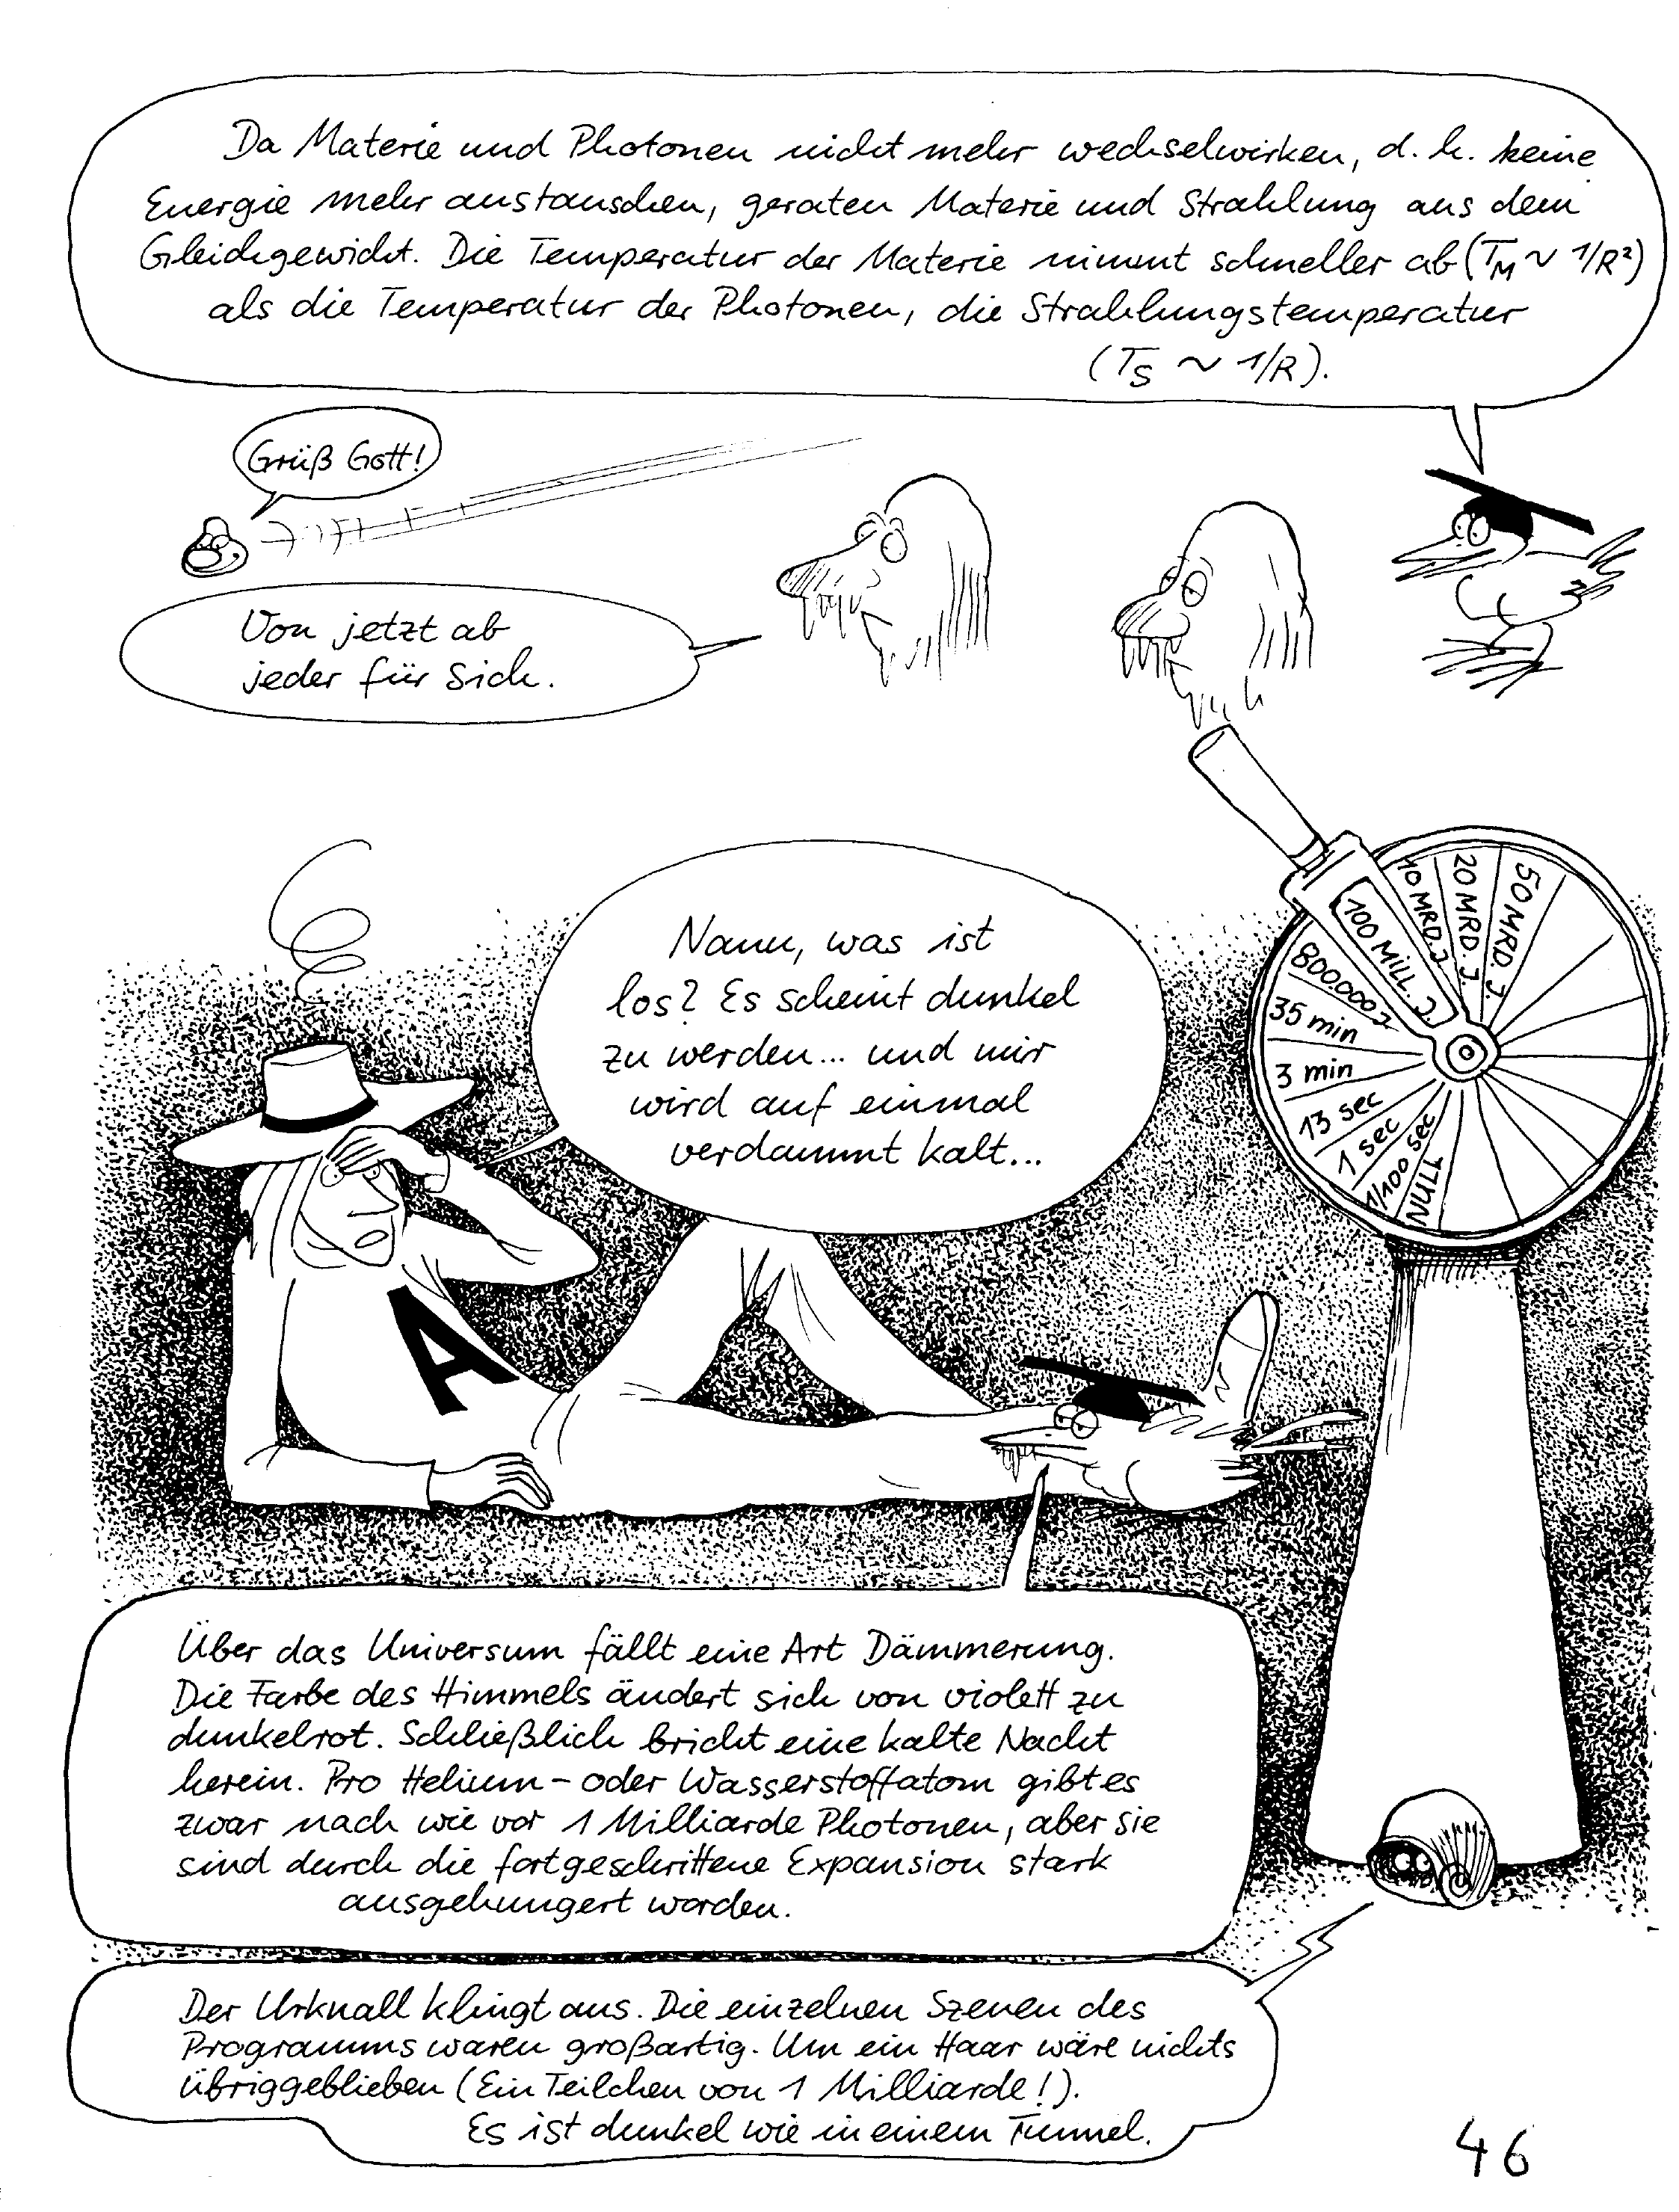 Da Materie und Photonen nicht mehr wechselwirken, d. h. keine
Energie mehr austauschen, geraten Materie und Strahlung aus dem
Gleichgewicht. Die Temperatur der Materie nimmt schneller ab (T_M ~ 1/R²)
als die Temperatur der Photonen, die Strahlungstemperatur
(T_S ~ 1/R).
Grüß Gott!
Von jetzt ab
jeder für sich.
Nanu, was ist
los? Es scheint dunkel
zu werden... und mir
wird auf einmal
verdammt kalt...
50 MRD. J.
20 MRD. J.
10 MRD. J.
100 MILL. J.
800000 J
35 min
3 min
13 sec
1 sec
1/100 sec
NULL
A
Über das Universum fällt eine Art Dämmerung.
Die Farbe des Himmels ändert sich von violett zu
dunkelrot. Schließlich bricht eine kalte Nacht
herein. Pro Helium- oder Wasserstoffatom gibt es
zwar nach wie vor 1 Milliarde Photonen, aber sie
sind durch die fortgeschrittene Expansion stark
ausgehungert worden.
Der Urknall klingt aus. Die einzelnen Szenen des
Programms waren großartig. Um ein Haar wäre nichts
übriggeblieben (Ein Teilchen von 1 Milliarde!).
Es ist dunkel wie in einem Tunnel.
46